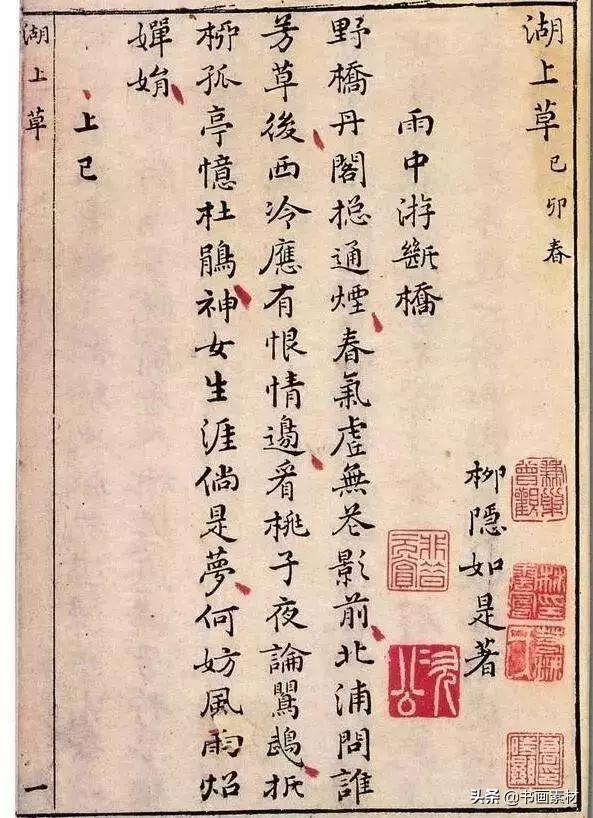 湖上草 己卯春
柳隱如是著
雨中游斷橋
野橋丹閣捴通煙春氣虛無花影前北浦問誰
芳草後西冷應有恨情邊看桃子夜論鸎鵡折
柳孤亭憶杜鵑神女生涯倘是夢何妨風雨炤
嬋娟
上巳
湖上草
一
头条 @书画素材